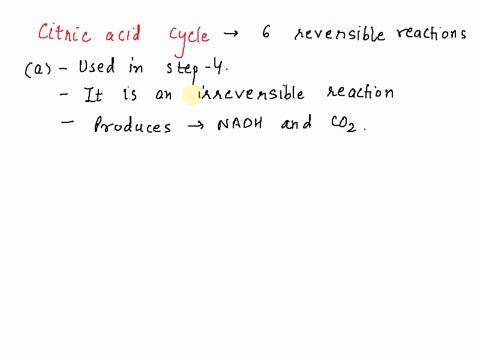 Citric acid cycle → 6 reversible reactions
(a) - Used in step-4.
- It is an irreversible reaction
- Produces → NADH and CO₂.